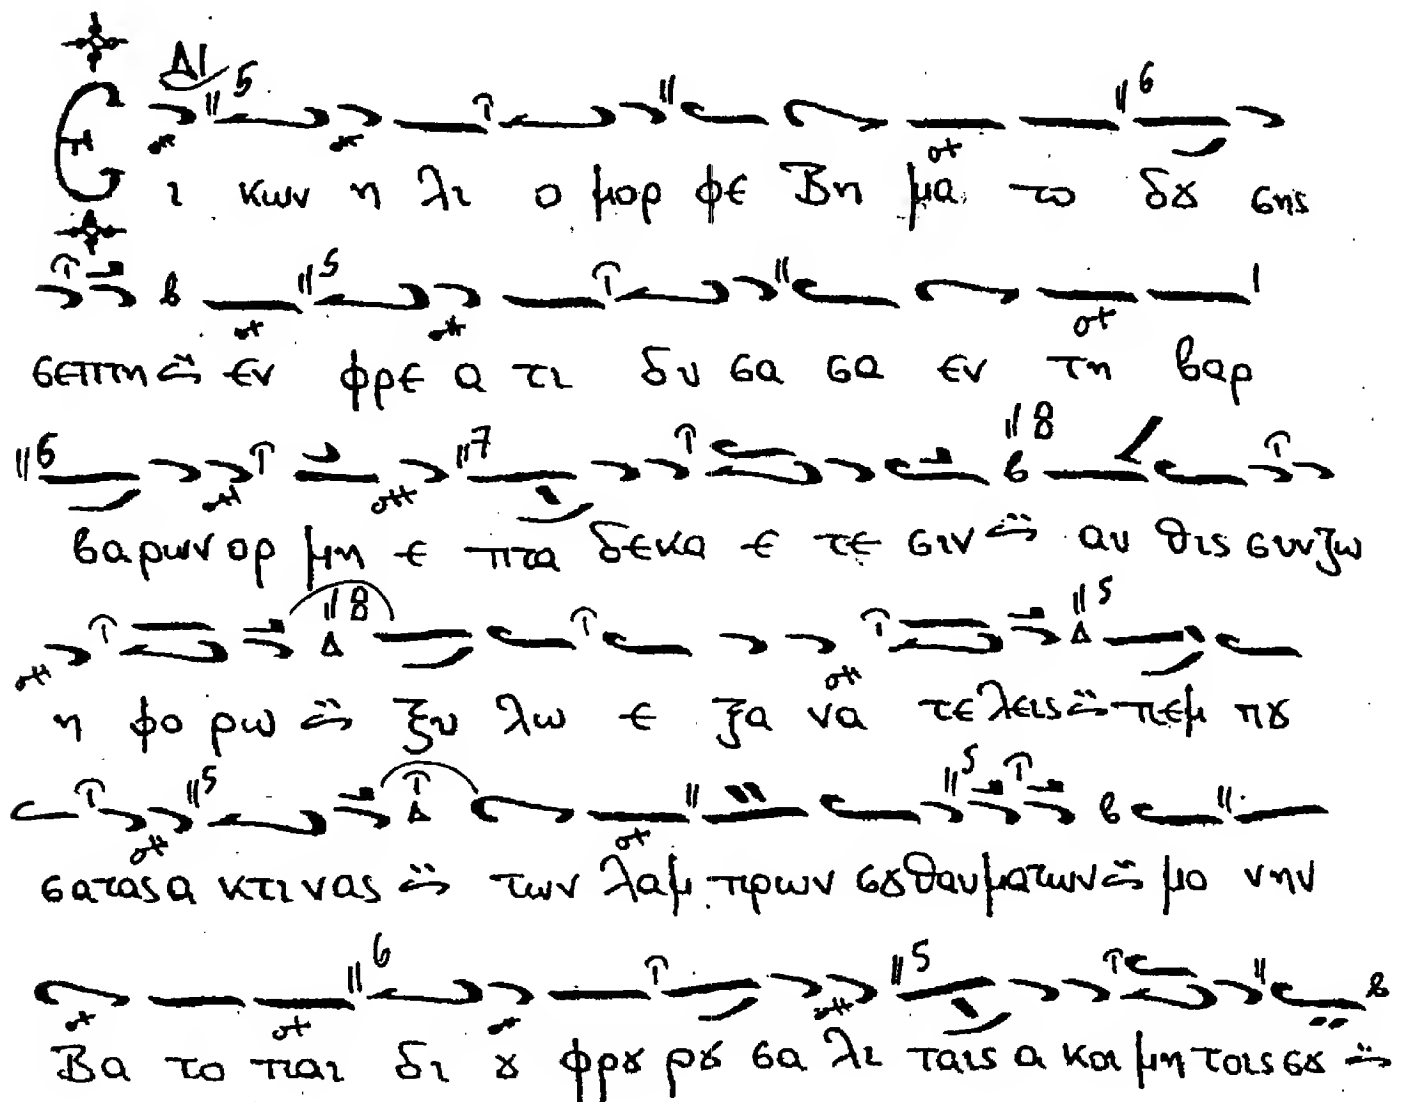 Ει κων η λι ο μορ φε Βη μα το δȣ σης
σεπτη εν φρε α τι δυ σα σα εν τη βαρ
βαρων ορ μη ε πτα δεκα ε τε σιν αυ θις συν ζω
η φο ρω ξυ λω ε ξα να τε λεις πεμ πȣ
σα τας α κτι νας των λαμ πρων σȣ θαυματων μο νην
Βα το παι δι ȣ φρȣ ρȣ σα λι ταις α κοι μη τοις σȣ